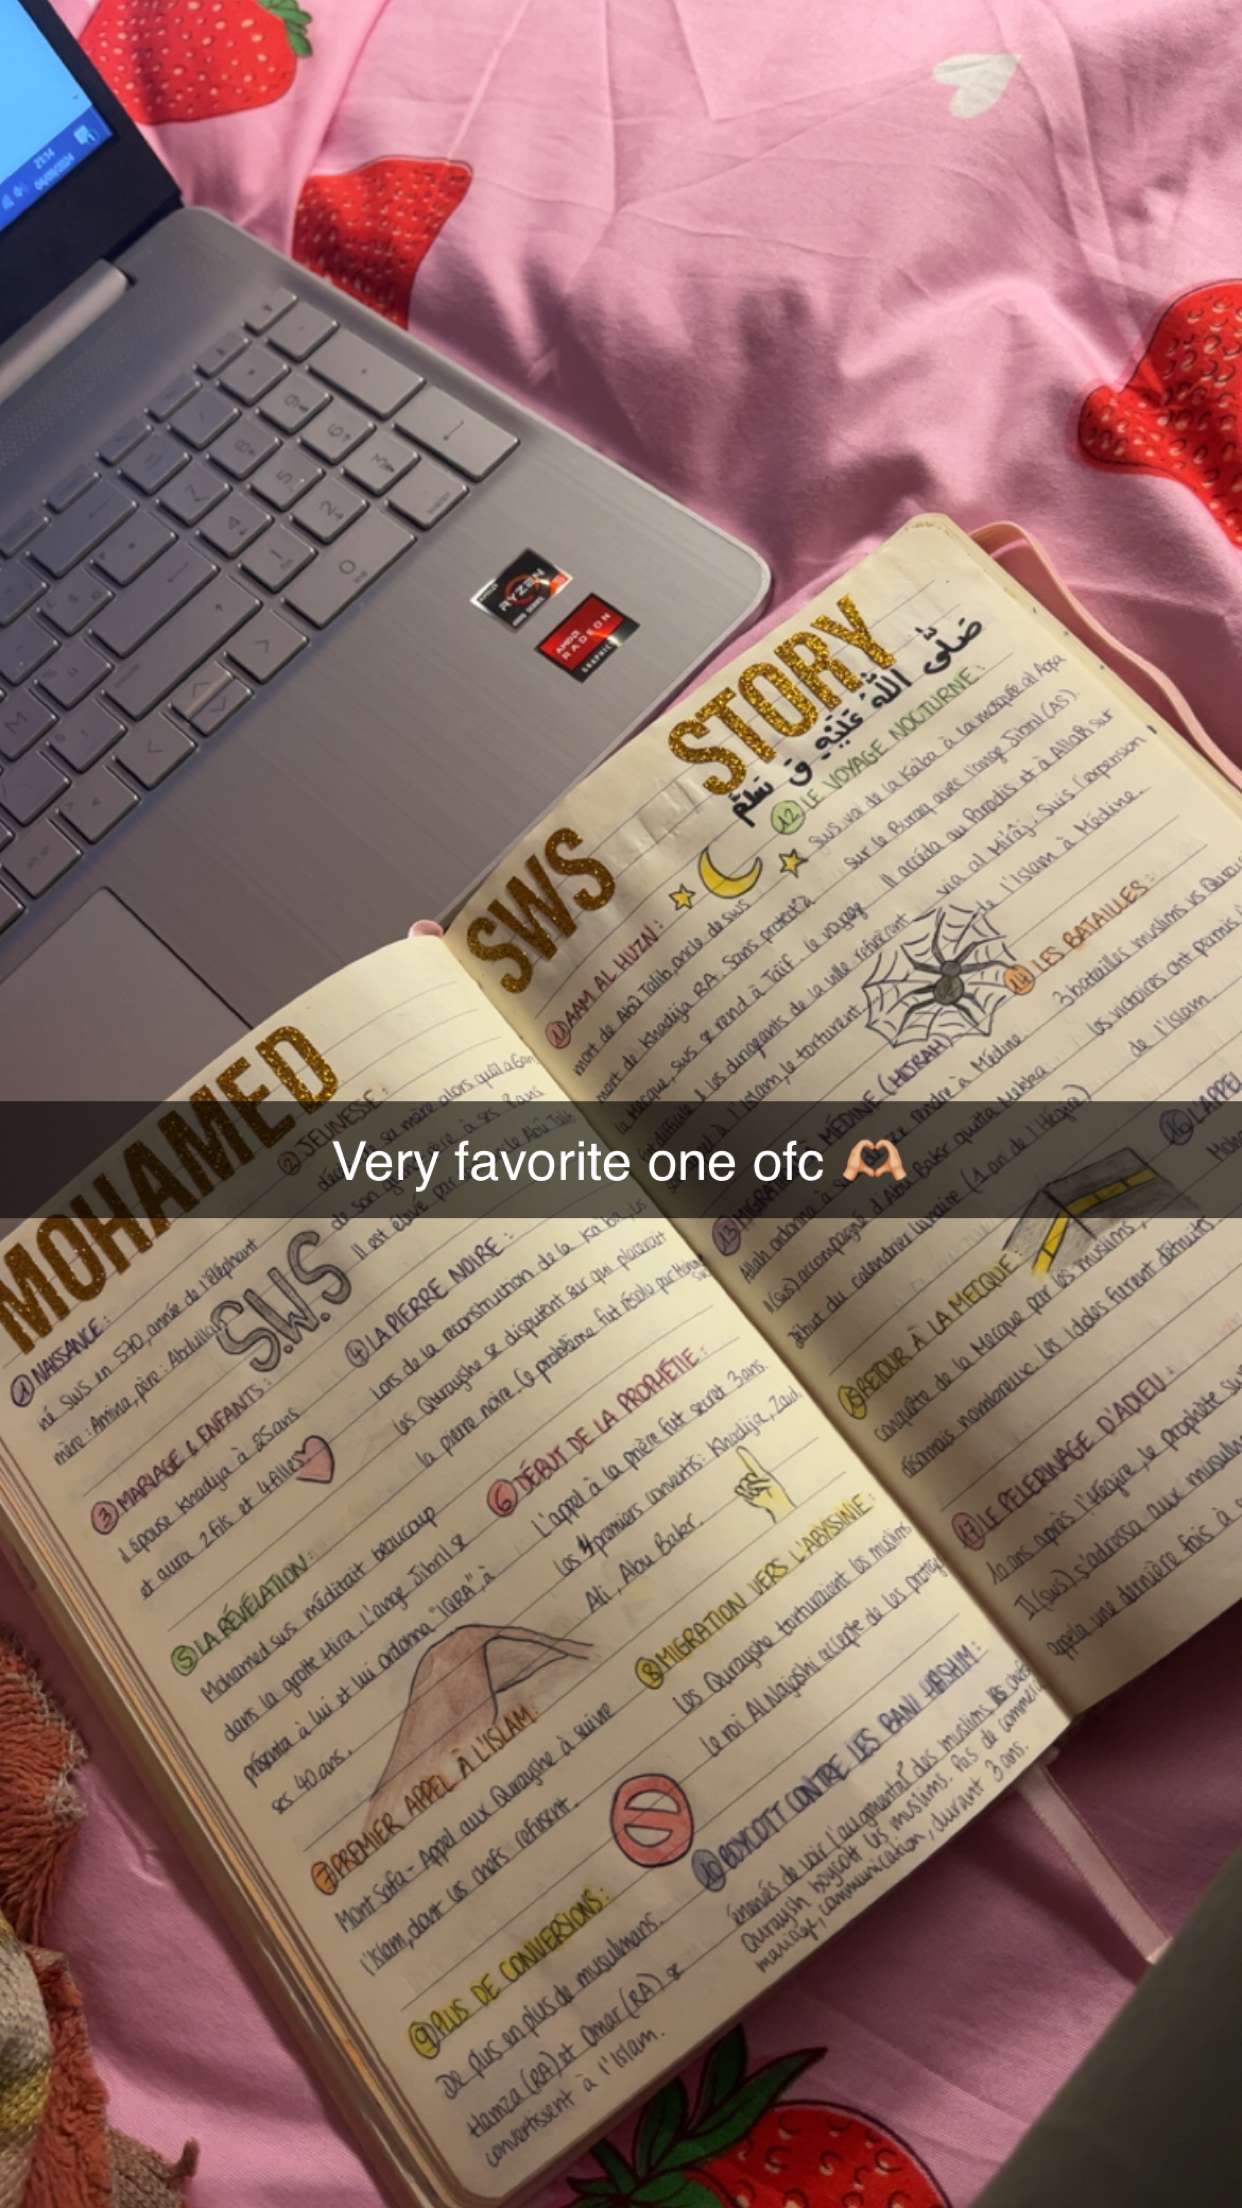 21:14
RYZEN
AMD
RADEON
GRAPHICS
Very favorite one ofc 🫶🏼
MOHAMED
① NAISSANCE:
né SWS en 570, année de l'éléphant
mère: Amina, père: Abdullah
S.W.S
② JEUNESSE:
sa mère alors qu'il a 6an
③ MARIAGE & ENFANTS:
il épouse Khadija à 25ans
et aura 2 fils et 4 filles
④ LA PIERRE NOIRE:
Lors de la reconstruction de la Kaba, les
Quraysh se disputent sur qui placerait
la pierre noire. Le problème fut résolu par
⑤ LA RÉVÉLATION:
Mohamed sws méditait beaucoup
dans la grotte Hira. L'ange Jibril se
présenta à lui et lui ordonna "IQRA", à
ses 40 ans.
⑥ DÉBUT DE LA PROPHÉTIE:
L'appel à la prière fut secret 3ans.
Les 4 premiers convertis: Khadija, Zaid,
Ali, Abu Bakr.
⑦ PREMIER APPEL À L'ISLAM:
Mont Safa - Appel aux Quraysh à suivre
l'Islam, dont les chefs refusent.
⑧ MIGRATION VERS L'ABYSSINIE:
Les Quraysh torturaient les muslims
Le roi Al Najashi accepte de les protéger
⑨ PLUS DE CONVERSIONS:
De plus en plus de musulmans.
Hamza (RA) et Omar (RA) se
convertissent à l'Islam.
⑩ BOYCOTT CONTRE LES BANI HASHIM:
énervés de voir l'augmentat° des muslims, les
Quraysh boycott les muslims. Pas de commerce,
mariage, communication, durant 3 ans.
SWS STORY
صَلَّى اللّٰهُ عَلَيْهِ وَ سَلَّم
⑪ AAM AL HUZN:
mort de Abû Talib, oncle de sws
mort de Khadija RA. Sans protect°à
la Mecque, sws se rend à Taïf. Le voyage
est difficile & les dirigeants de la ville réfèrent
à l'Islam, le torturent.
⑫ LE VOYAGE NOCTURNE:
sws va de la Kaba à la mosquée al Aqsa
sur le Buraq avec l'ange Jibril (AS).
Il accéda au Paradis et à Allah sur
via al Mirâj. Suis l'expension
de l'Islam à Médine.
⑬ MIGRAT MÉDINE (HIJRAH)
Allah ordonna à se rendre à Médine
Il (sws) accompagné d'Abu Bakr quitta Makka.
Début du calendrier lunaire (1 an de l'Hégire)
⑭ LES BATAILLES:
3 batailles muslims vs Quraysh
les victoires ont permis
de l'Islam.
⑮ RETOUR À LA MECQUE
conquête de la Mecque par les muslims,
désormais nombreux. Les idoles furent détruites
⑯ L'APPEL
⑰ LE PELERINAGE D'ADIEU:
10 ans après l'Hégire, le prophète sws
Il (sws) s'adressa aux musulmans
appela une dernière fois à